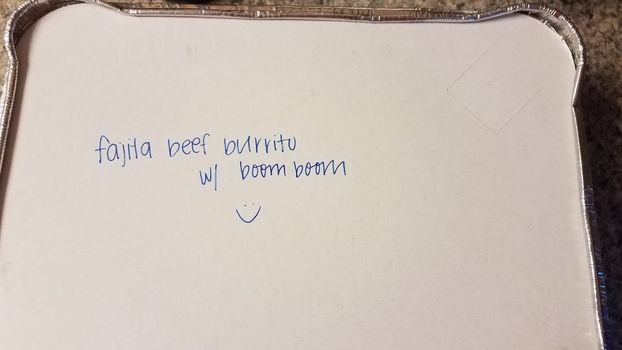 fajita beef burrito
w/ boom boom